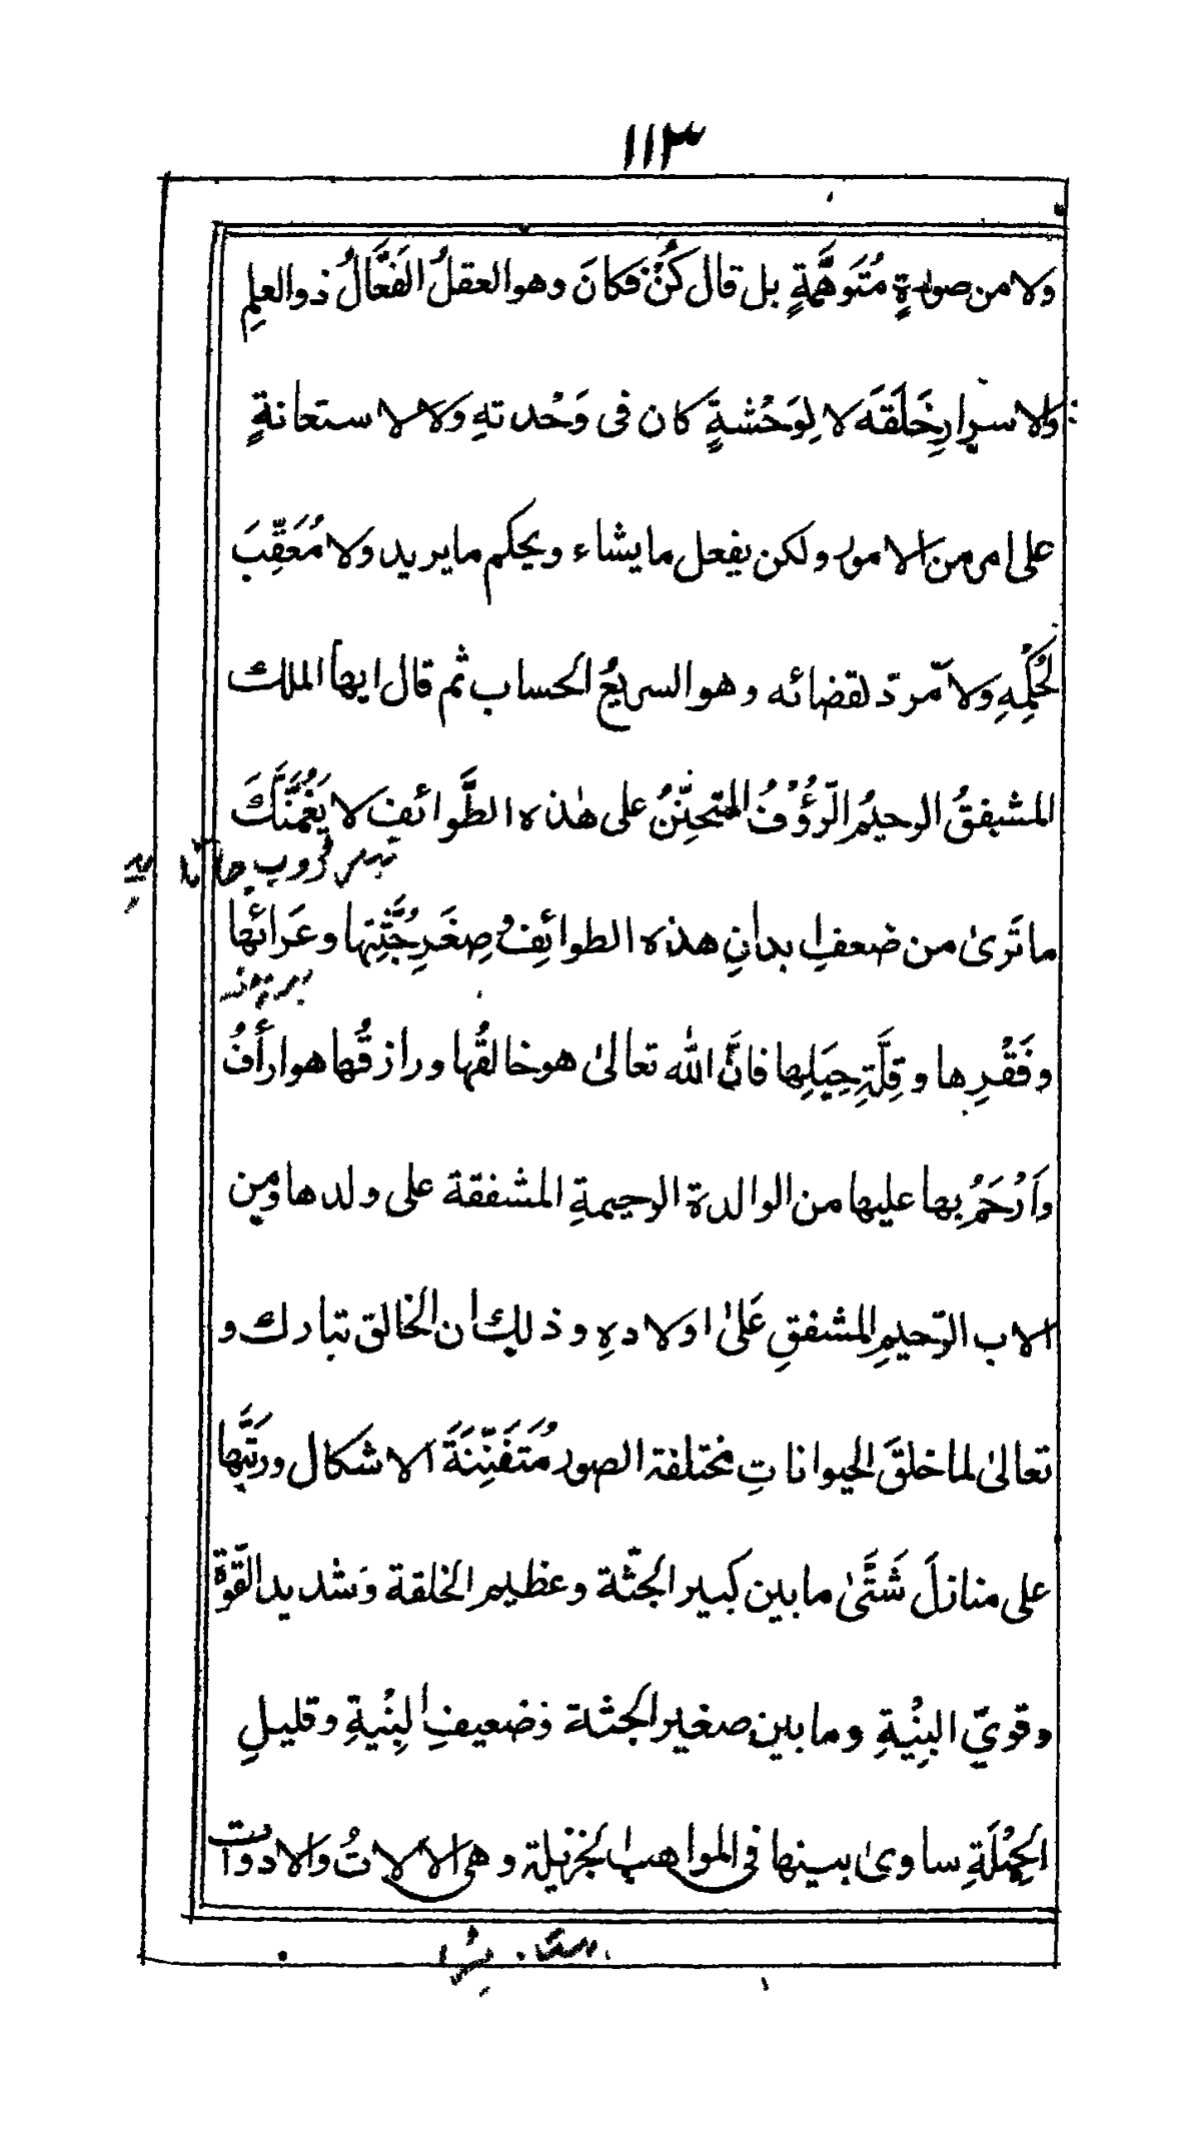 ١١٣
ولا من صورةٍ مُتَوَهَّمةٍ بل قال كُنْ فكانَ وهو العقلُ الفَعَّالُ ذو العلمِ
والاسرارِ خَلَقَه لا لِوَحْشةٍ كان فى وَحْدتهِ ولا لاستعانةٍ
على امرٍ من الامور ولكن يفعل ما يشاء ويحكم ما يريد ولا مُعَقِّبَ
لحُكْمِهِ ولا مردّ لقضائه وهو السريعُ الحساب ثم قال ايها الملك
المشفقُ الرحيمُ الرّؤُوْفُ المتحنِّنُ على هٰذه الطَّوائفِ لا يَغُمَّنَّكَ
ما تَرىٰ من ضعفِ ابدانِ هذه الطوائِفِ وصِغَرِ جُثَّتِها وعَرائها
وفَقْرِها وقِلَّةِ حِيَلِها فانَّ اللّٰه تعالىٰ هو خالقُها ورازقُها هو ارأَفُ
وَاَرْحَمُ بها عليها من الوالدة الرحيمةِ المشفقة على ولدها ومِن
الاب الرّحيمِ المشفقِ عَلىٰ اولادهِ وذٰلِكَ ان الخالق تبارك و
تعالىٰ لما خلقَ الحيواناتِ مختلفة الصور مُتَفَنِّنَةَ الاشكال ورتَّبَها
على منازلَ شَتّىٰ ما بين كبير الجثّة وعظيم الخلقة وَشديد القوّة
وقويّ البِنْيةِ وما بين صغير الجثة وضعيفِ البِنْيةِ وقليلِ
الحِيْلَةِ ساوىٰ بينها فى المواهب الجزيلة وهى الالاتُ والادوات